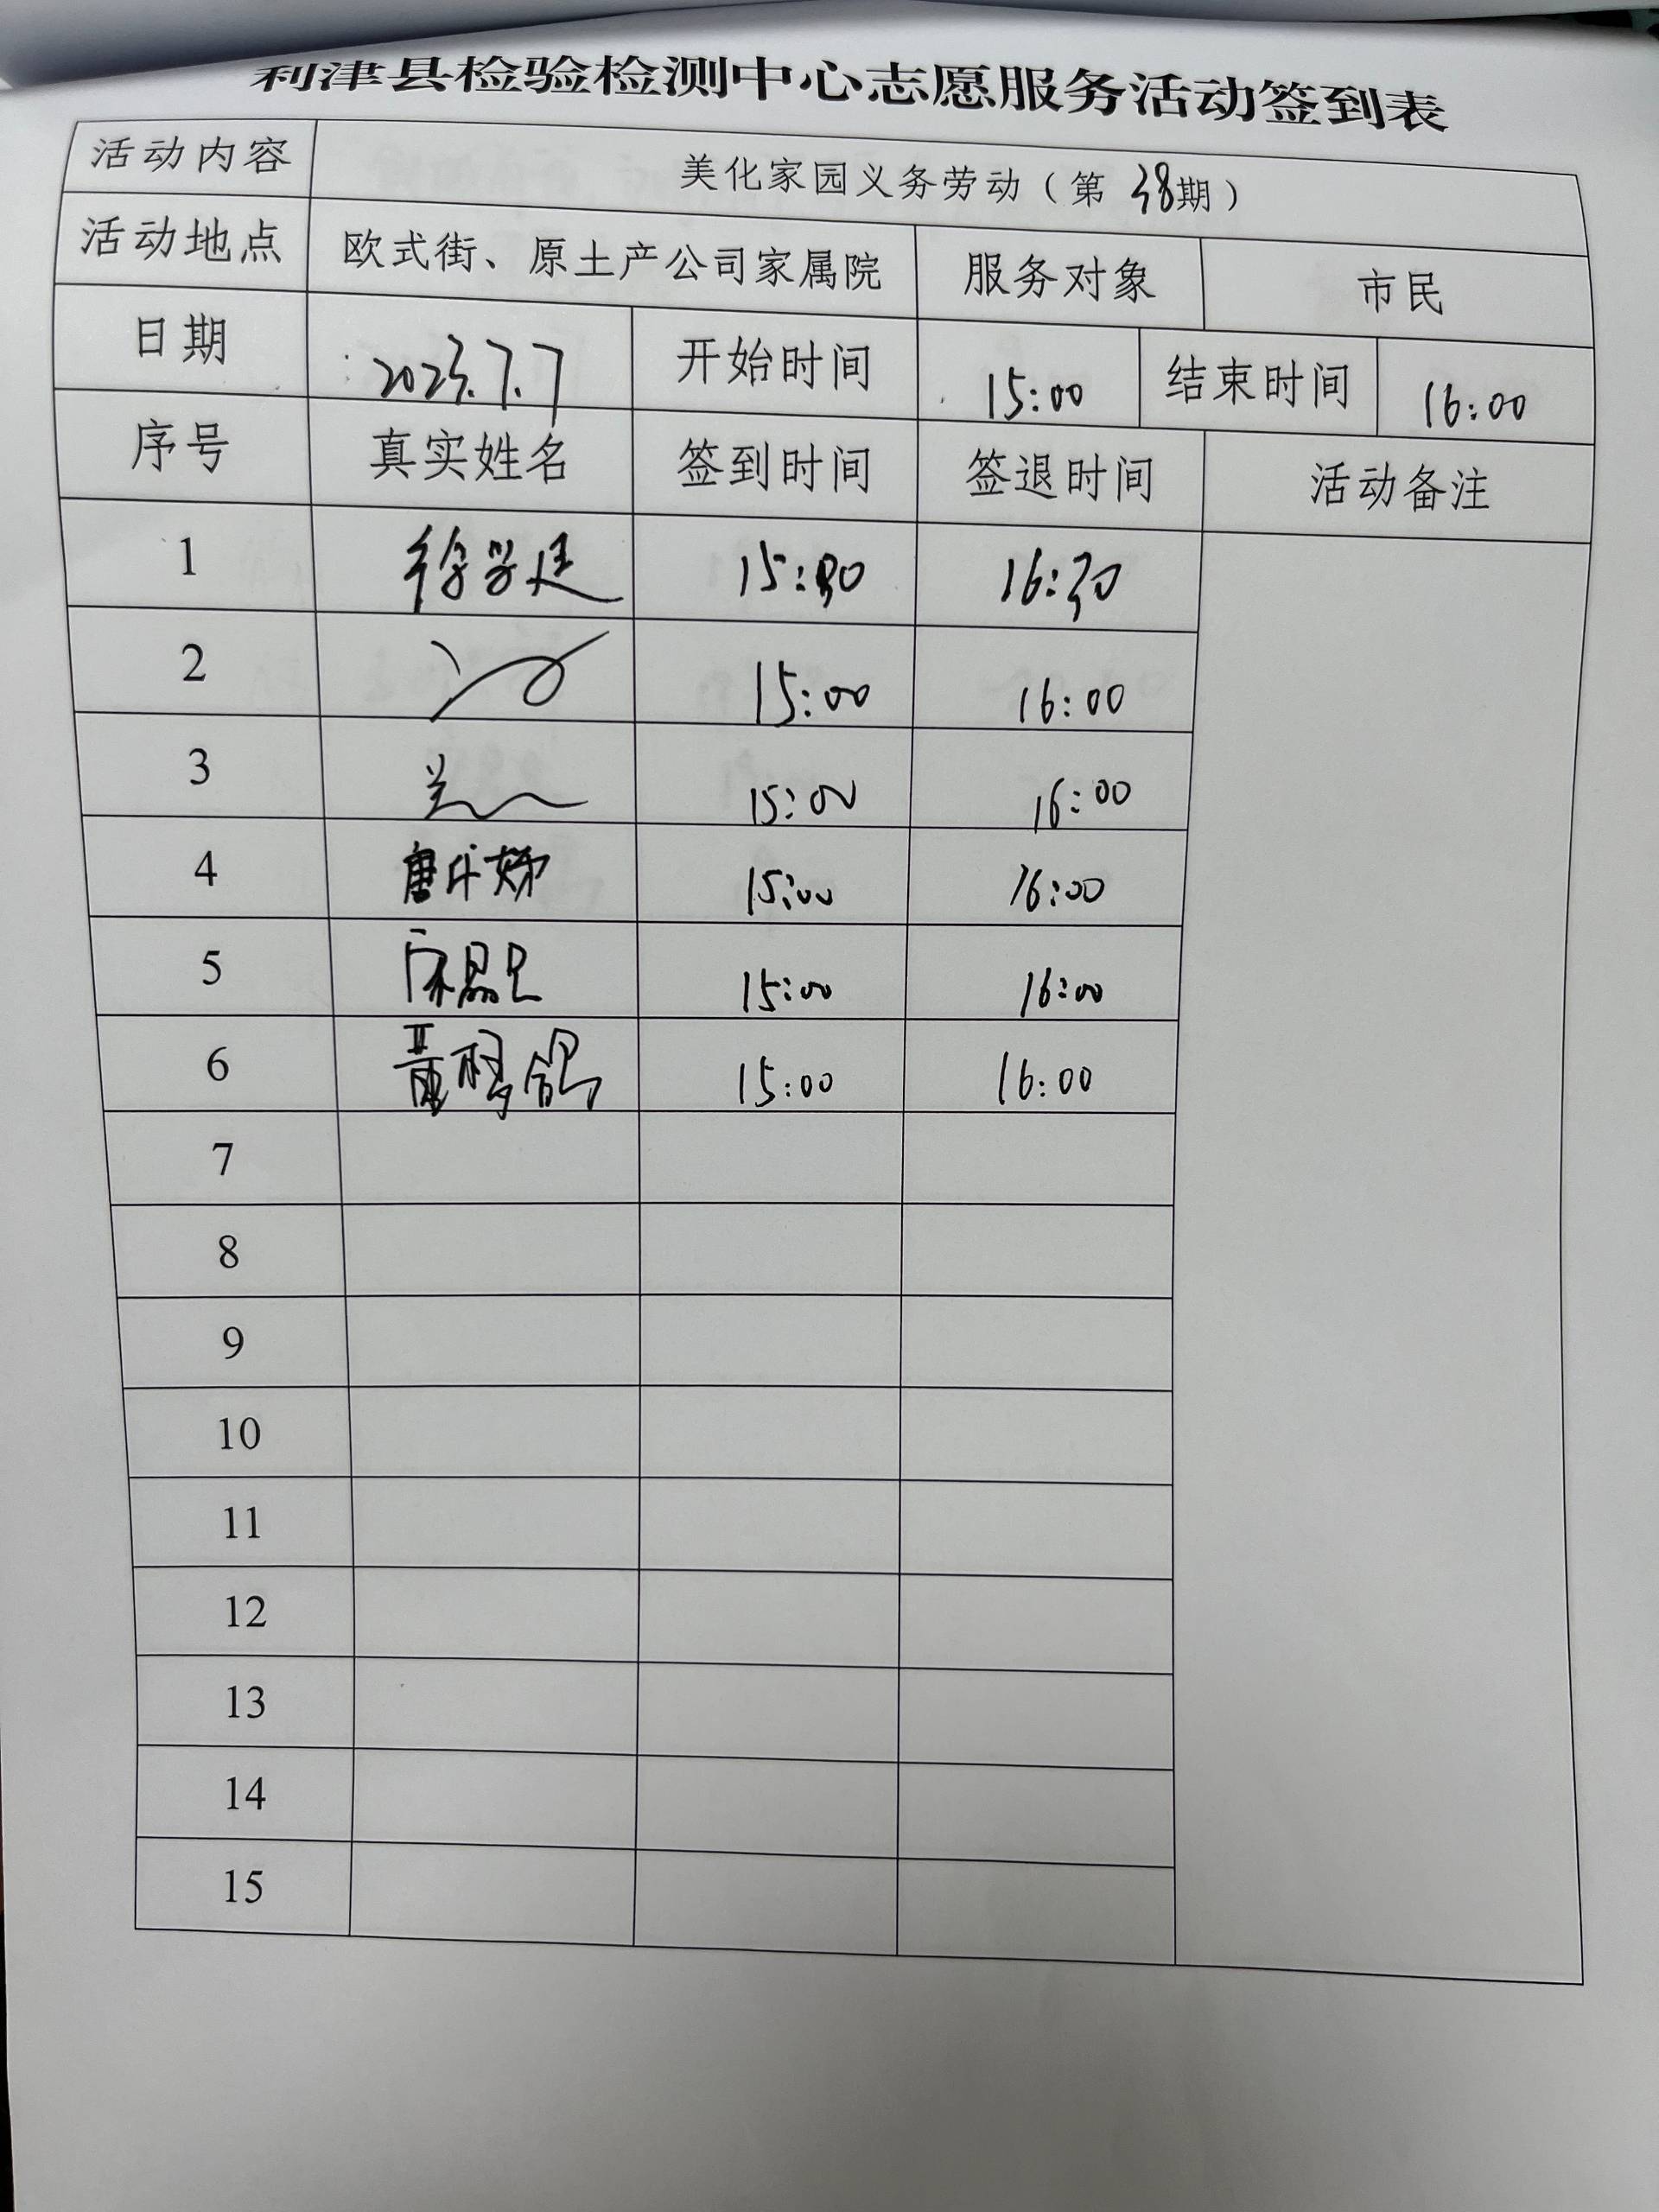 利津县检验检测中心志愿服务活动签到表
活动内容 美化家园义务劳动（第 38期）
活动地点 欧式街、原土产公司家属院 服务对象 市民
日期 2023.7.7 开始时间 15:00 结束时间 16:00
序号 真实姓名 签到时间 签退时间 活动备注
1 徐学廷 16:30
2 15:00 16:00
3 15:00 16:00
4 15:00 16:00
5 15:00 16:00
6 15:00 16:00
7
8
9
10
11
12
13
14
15